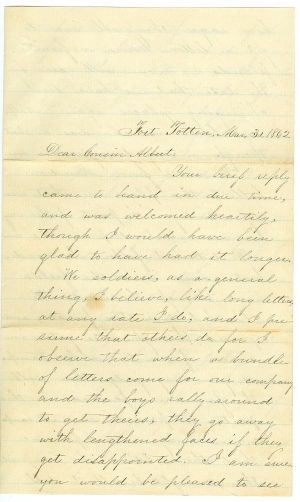 Fort Totten, Mar. 31, 1862
Dear Cousin Albert,
Your brief reply
came to hand in due time,
and was welcomed heartily,
though I would have been
glad to have had it longer.
We soldiers, as a general
thing, I believe, like long letters,
at any rate I do; and I pre
sume that others do for I
observe that when a bundle
of letters come for our company
and the boys rally around
to get theirs, they go away
with lengthened faces if they
get disappointed. I am sure
you would be pleased to see